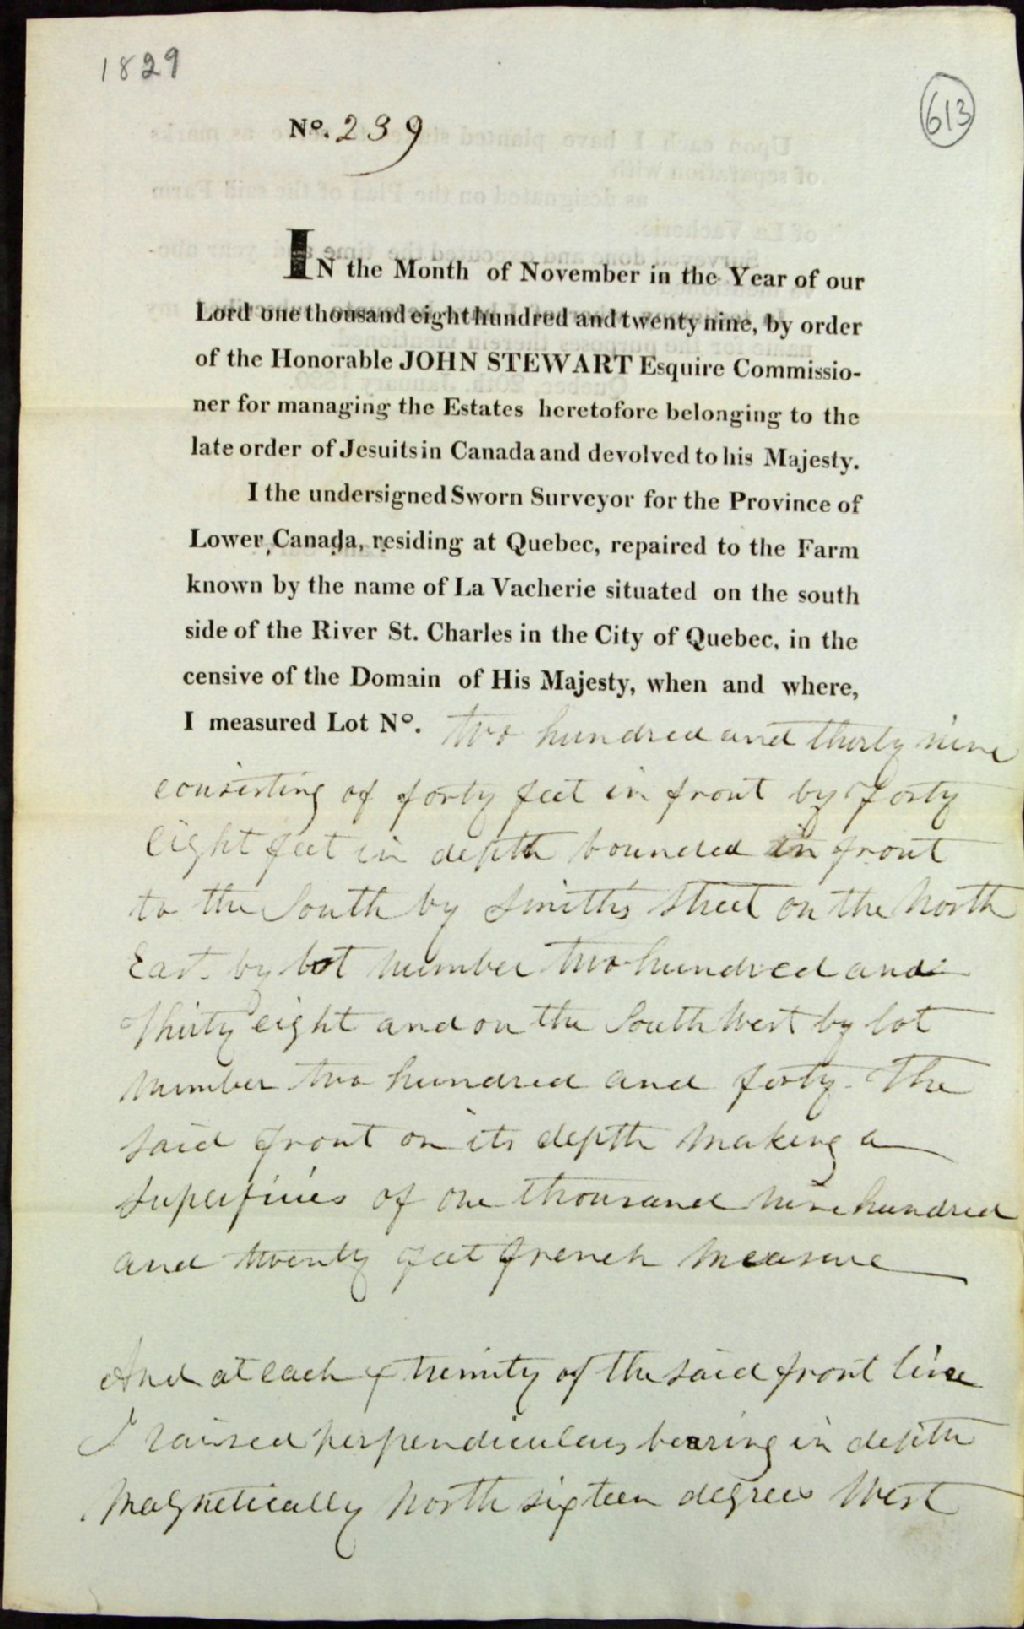 1829
613
No. 239
IN the Month of November in the Year of our
Lord one thousand eight hundred and twenty nine, by order
of the Honorable JOHN STEWART Esquire Commissio-
ner for managing the Estates heretofore belonging to the
late order of Jesuits in Canada and devolved to his Majesty.
I the undersigned Sworn Surveyor for the Province of
Lower Canada, residing at Quebec, repaired to the Farm
known by the name of La Vacherie situated on the south
side of the River St. Charles in the City of Quebec, in the
censive of the Domain of His Majesty, when and where,
I measured Lot No. two hundred and thirty nine
consisting of forty feet in front by forty
eight feet in depth bounded in front
to the South by Smith's Street on the North
East by lot number two hundred and
Thirty eight and on the South West by lot
number two hundred and forty. The
said front on its depth making a
superficies of one thousand nine hundred
and twenty feet french measure
And at each extremity of the said front line
I raised perpendiculars bearing in depth
magnetically North sixteen degrees West